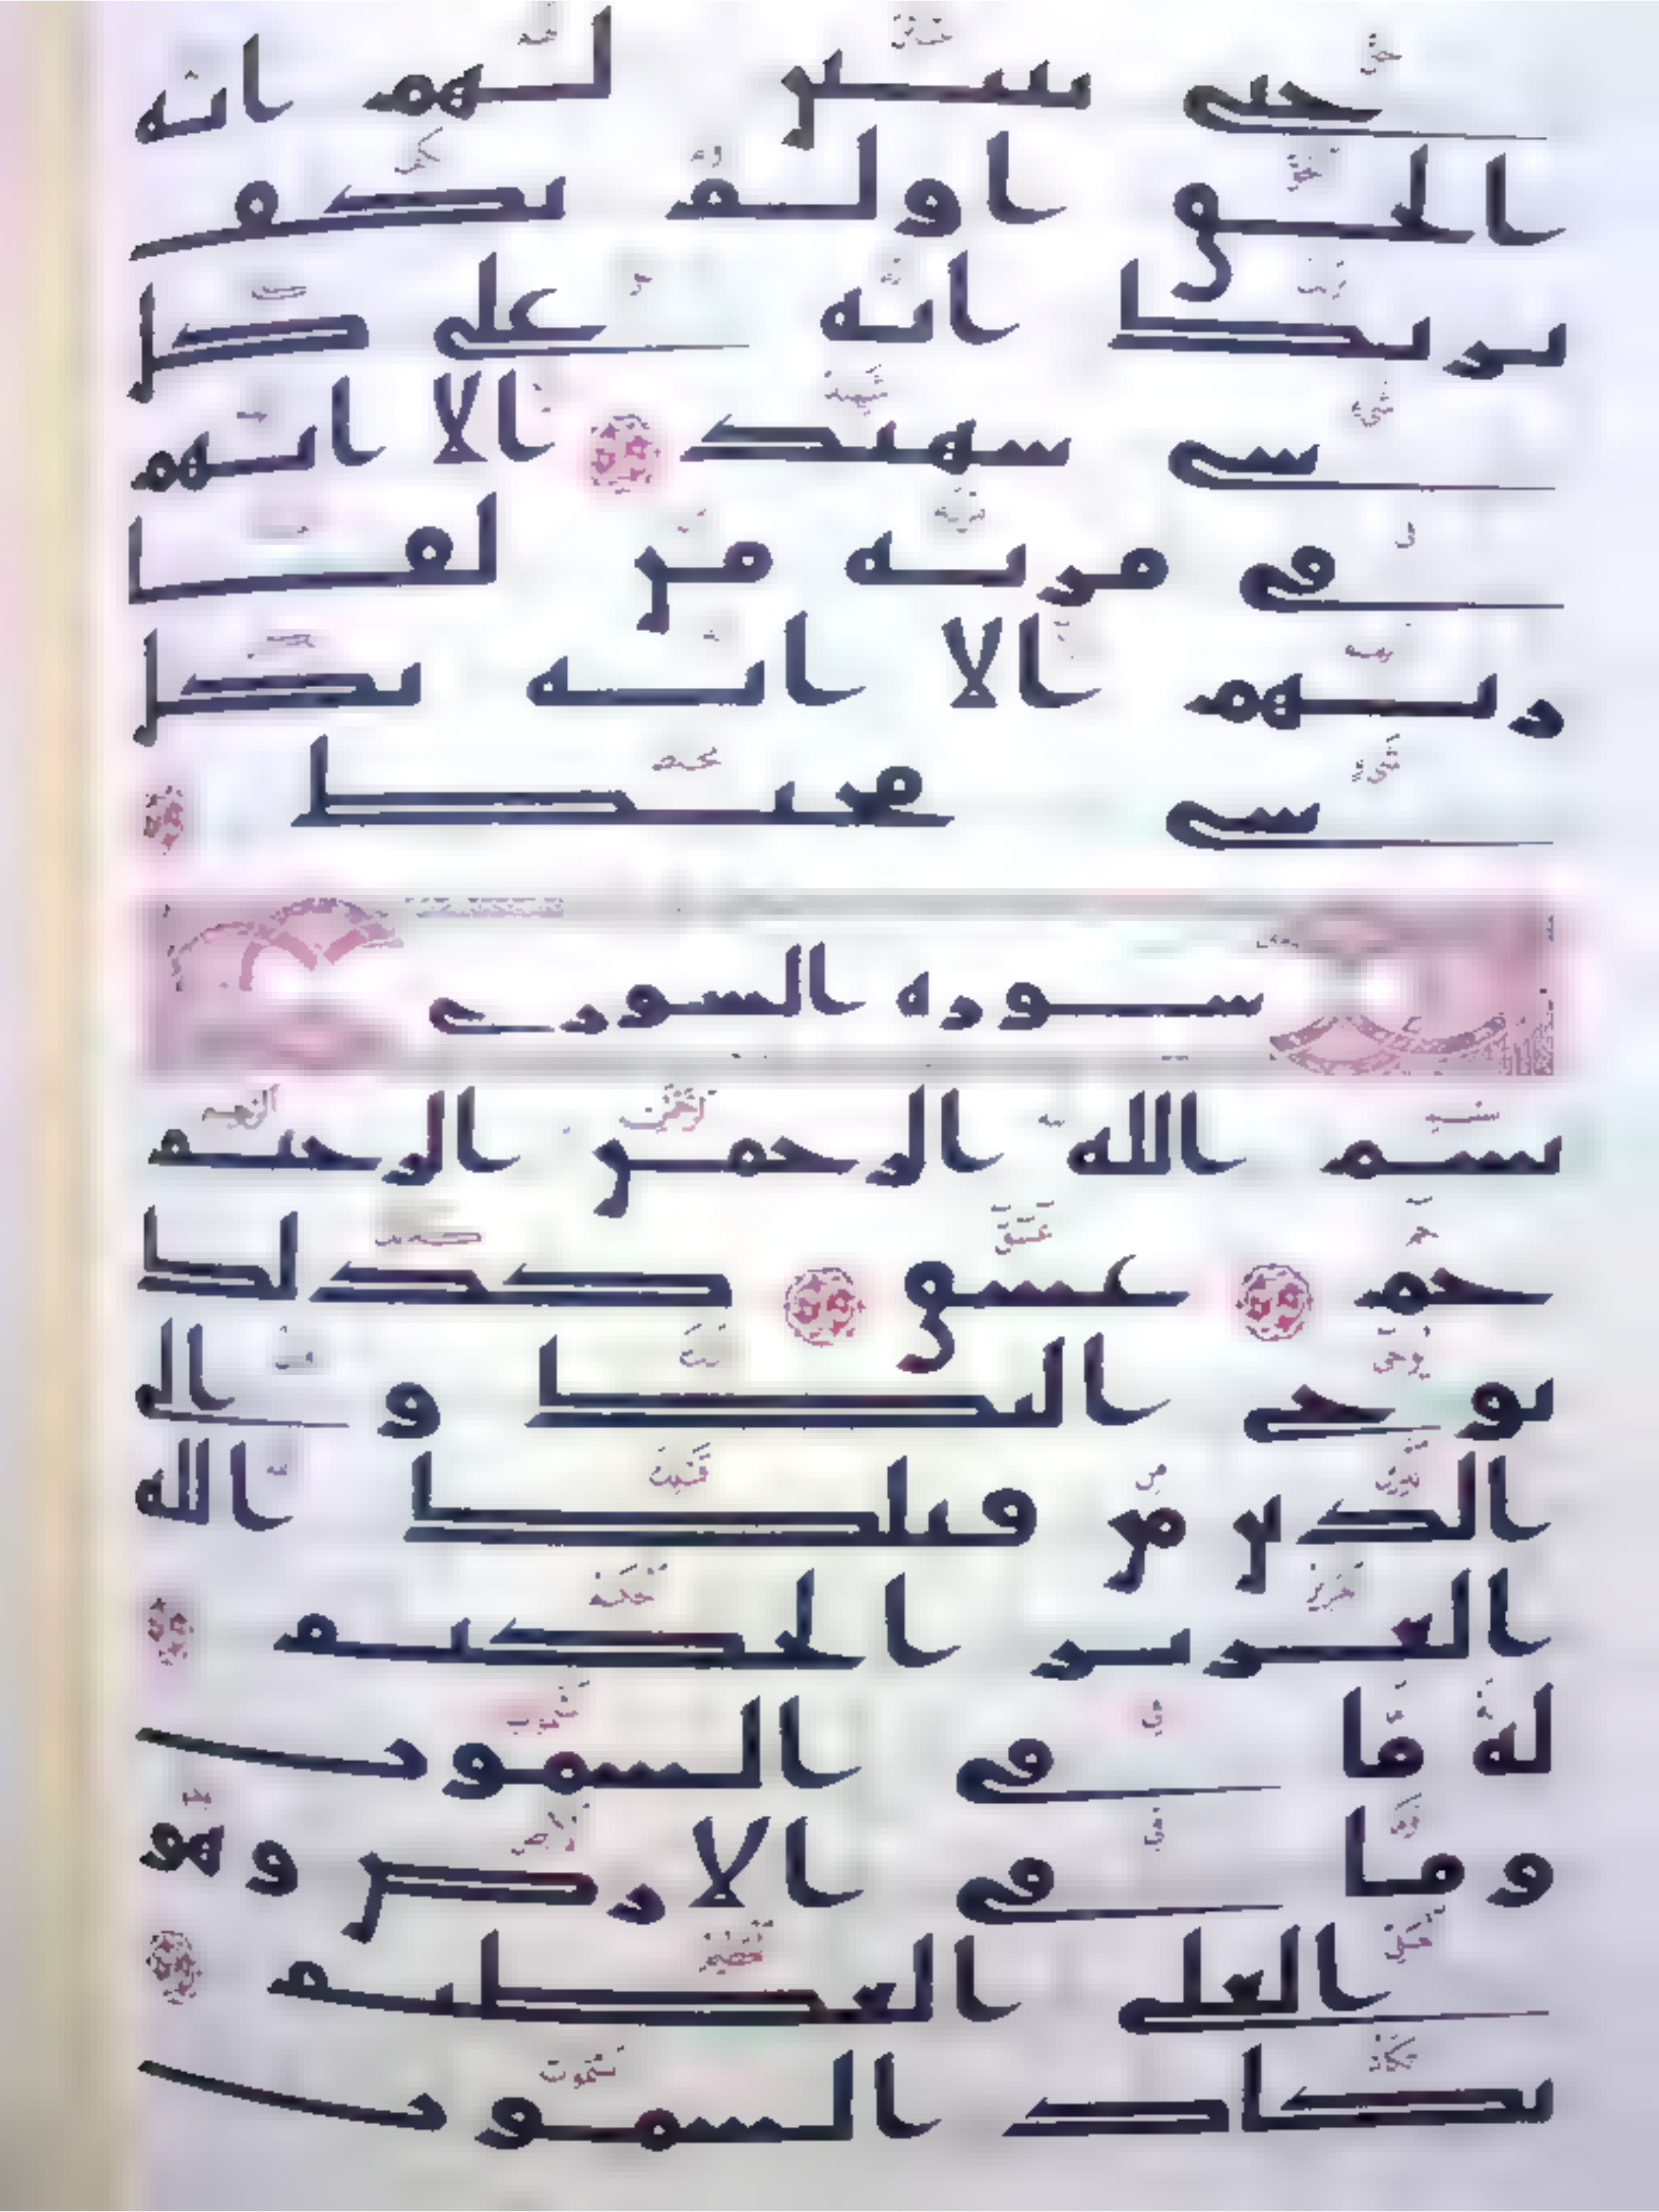 حتى يتبين لهم انه
الحق اولم يكف
بربك انه على كل
شى شهيد الا انهم
فى مرية من لقا
ربهم الا انه بكل
شى محيط
سورة الشورى
بسم الله الرحمن الرحيم
حم عسق كذلك
يوحى اليك و الى
الذين من قبلك الله
العزيز الحكيم
له ما فى السموت
وما فى الارض وهو
العلى العظيم
تكاد السموت